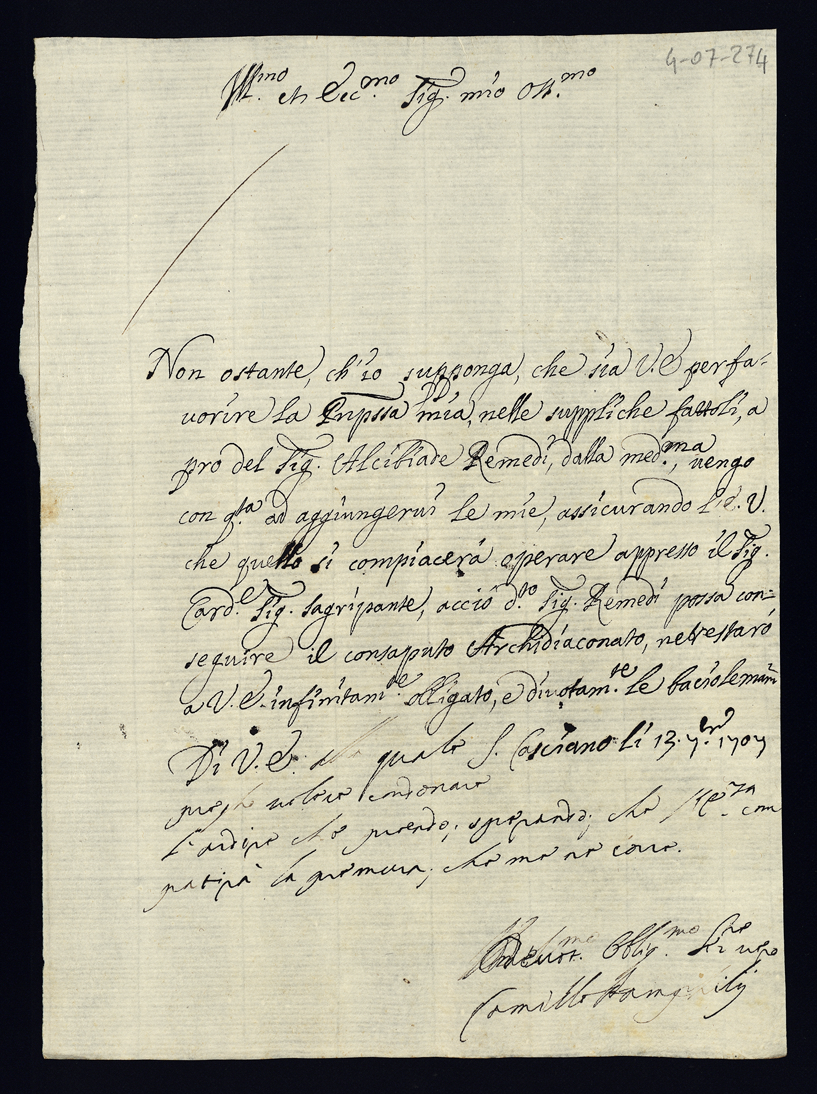 4-07-274
Ill.mo et Ecc.mo Sig. mio Oss.mo
Non ostante, ch'io supponga, che sia V.E. per fa-
uorire la Pnpssa mia, nelle suppliche fattoli, a
pro del Sig. Alcibiade Remedi, dalla med.ma, vengo
con q.ta ad aggiungerui le mie, assicurando l'E.V.
che quello si compiacerà operare appresso il Sig.
Card.e Sig. Sagripante, acciò d.to Sig. Remedi possa con=
seguire il consaputo Archidiaconato, ne restarò
a V.E. infinitam.te obligato, e diuotam.te le bacio le mani
Di V.E. alla quale S. Casciano li 13. 7bre. 1707
prego uolere condonare
l'ardire che prendo, sperando, che com
patirà la premura, che me ne corre.
Deuot. Oblig.mo Se.re uero
Camillo